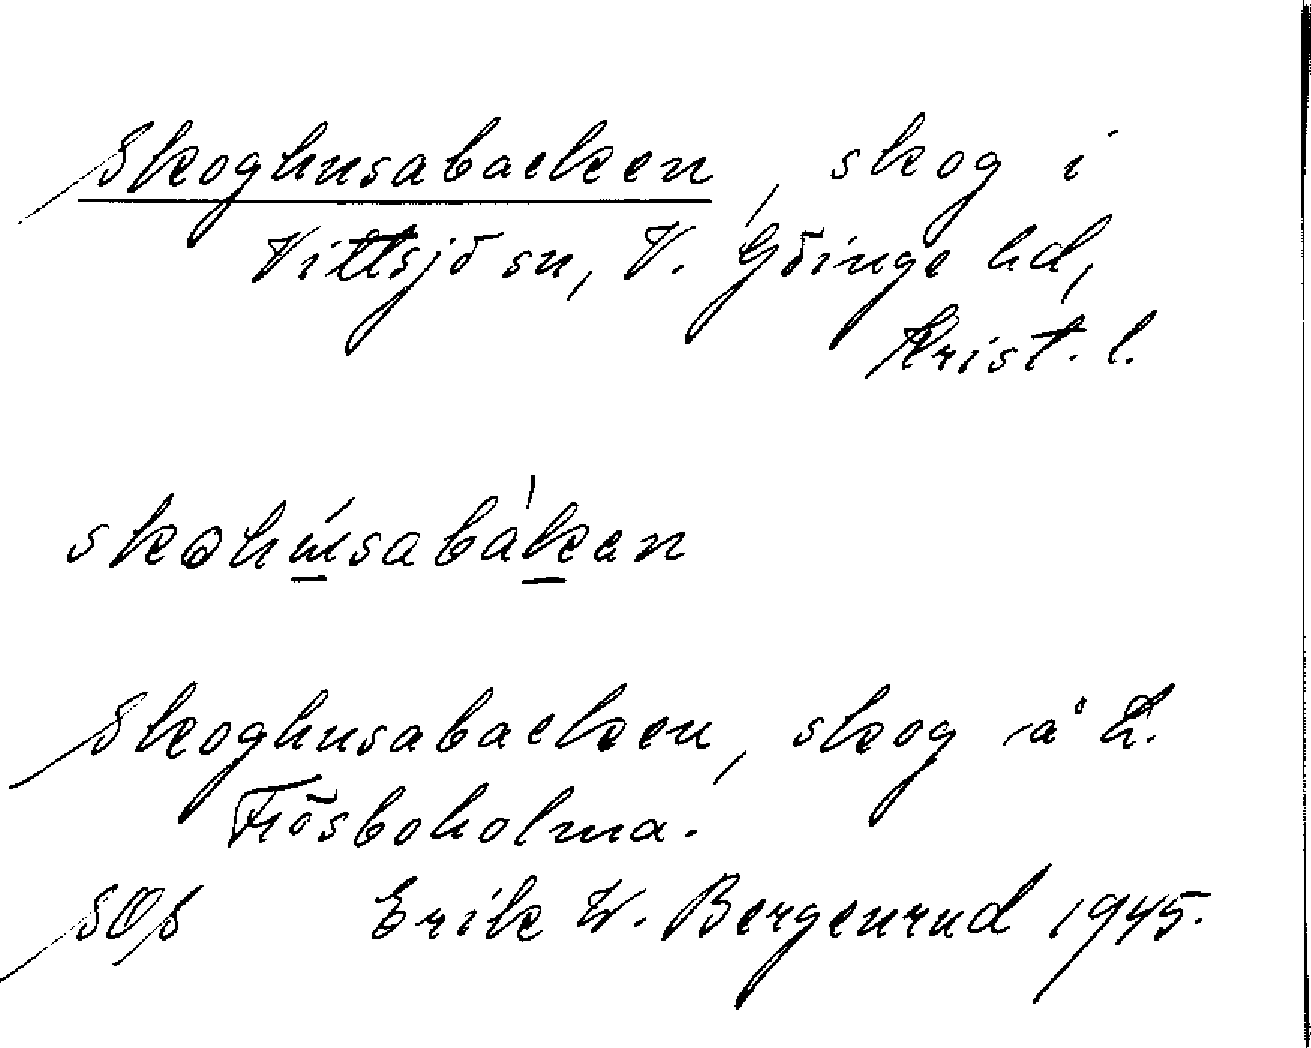 Skoghusabacken, skog i
Vittsjö sn, V. Göinge hd,
Krist. l.
skohúsabákan
Skoghusabacken, skog å
Frösboholma.
Erik W. Bergenrud 1945.